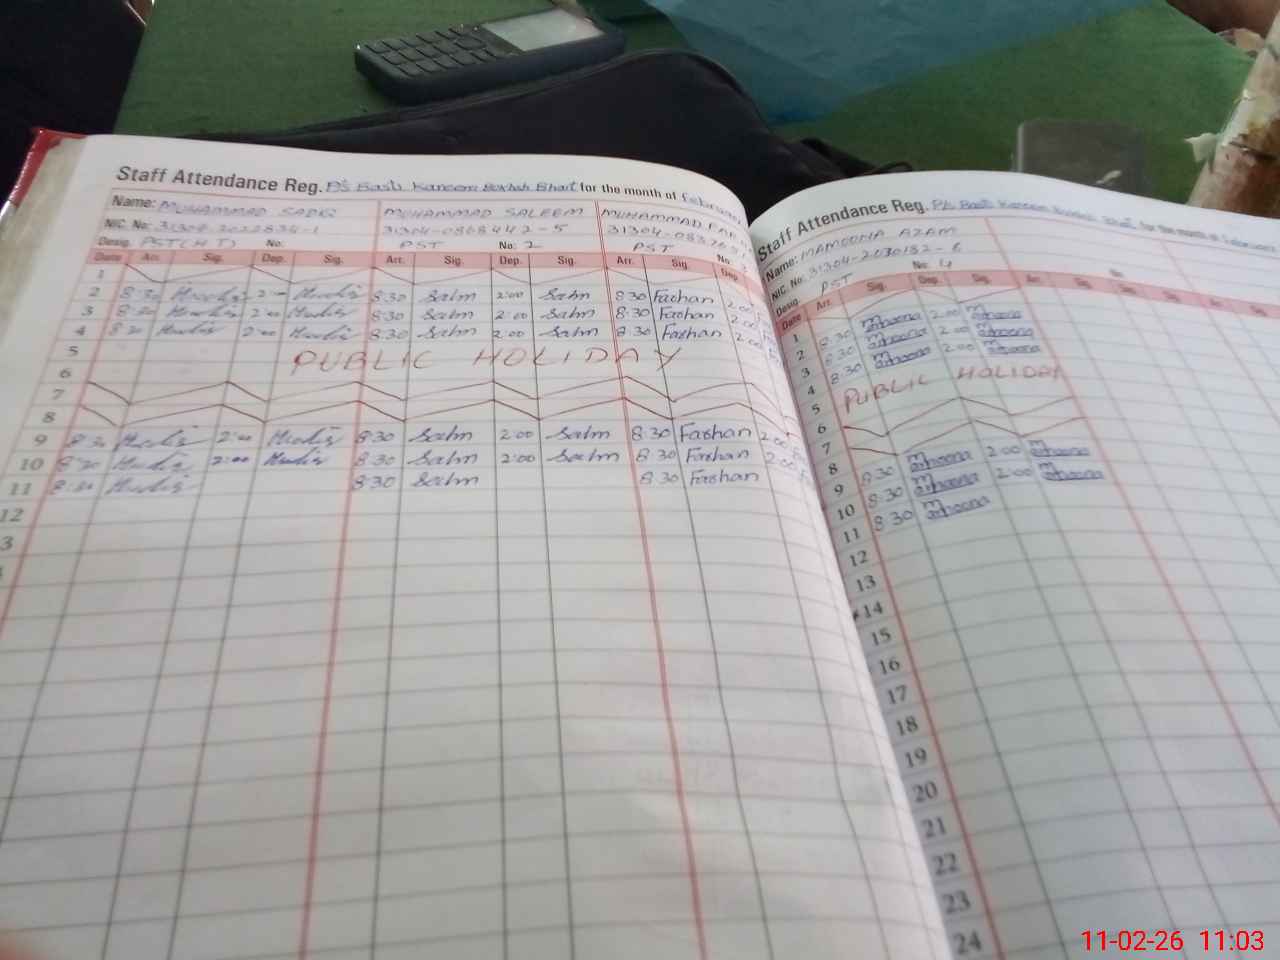 Staff Attendance Reg. P/S Basti Kareem Bakhsh Bhart for the month of February
Name: MUHAMMAD SADIQ MUHAMMAD SALEEM MUHAMMAD
NIC. No: 31304-2022834-1 31304-0868442-5 31304-
Desig. PST(HT) No: PST No: 2 PST No:
Date Arr. Sig. Dep. Sig. Arr. Sig. Dep. Sig. Arr. Sig. Dep.
1
2 8:30 2:00 8:30 Salm 2:00 Salm 8:30 Farhan 2:00
3 8:30 2:00 8:30 Salm 2:00 Salm 8:30 Farhan 2:00
4 8:30 2:00 8:30 Salm 2:00 Salm 8:30 Farhan 2:00
5 PUBLIC HOLIDAY
6
7
8
9 8:30 2:00 8:30 Salm 2:00 Salm 8:30 Farhan 2:00
10 8:30 2:00 8:30 Salm 2:00 Salm 8:30 Farhan 2:00
11 8:30 8:30 Salm 8:30 Farhan
12
3
Staff Attendance Reg. P/S Basti Kareem Bakhsh Bhart for the month of February
Name: MAMOONA AZAM
NIC. No: 31304-2030182-6
Desig. PST No: 4
Date Arr. Sig. Dep. Sig. Arr. Sig. Dep. Sig. Arr. Sig.
1
2 8:30 Mamoona 2:00 Mamoona
3 8:30 Mamoona 2:00 Mamoona
4 8:30 Mamoona 2:00 Mamoona
5 PUBLIC HOLIDAY
6
7
8
9 8:30 Mamoona 2:00 Mamoona
10 8:30 Mamoona 2:00 Mamoona
11 8:30 Mamoona
12
13
14
15
16
17
18
19
20
21
22
23
24
11-02-26 11:03